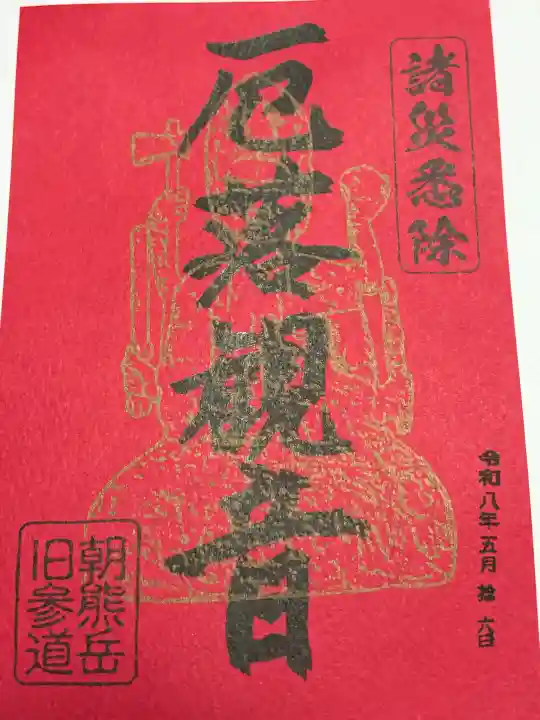 諸災悉除
厄落観音
令和八年五月拾六日
朝熊岳
旧参道